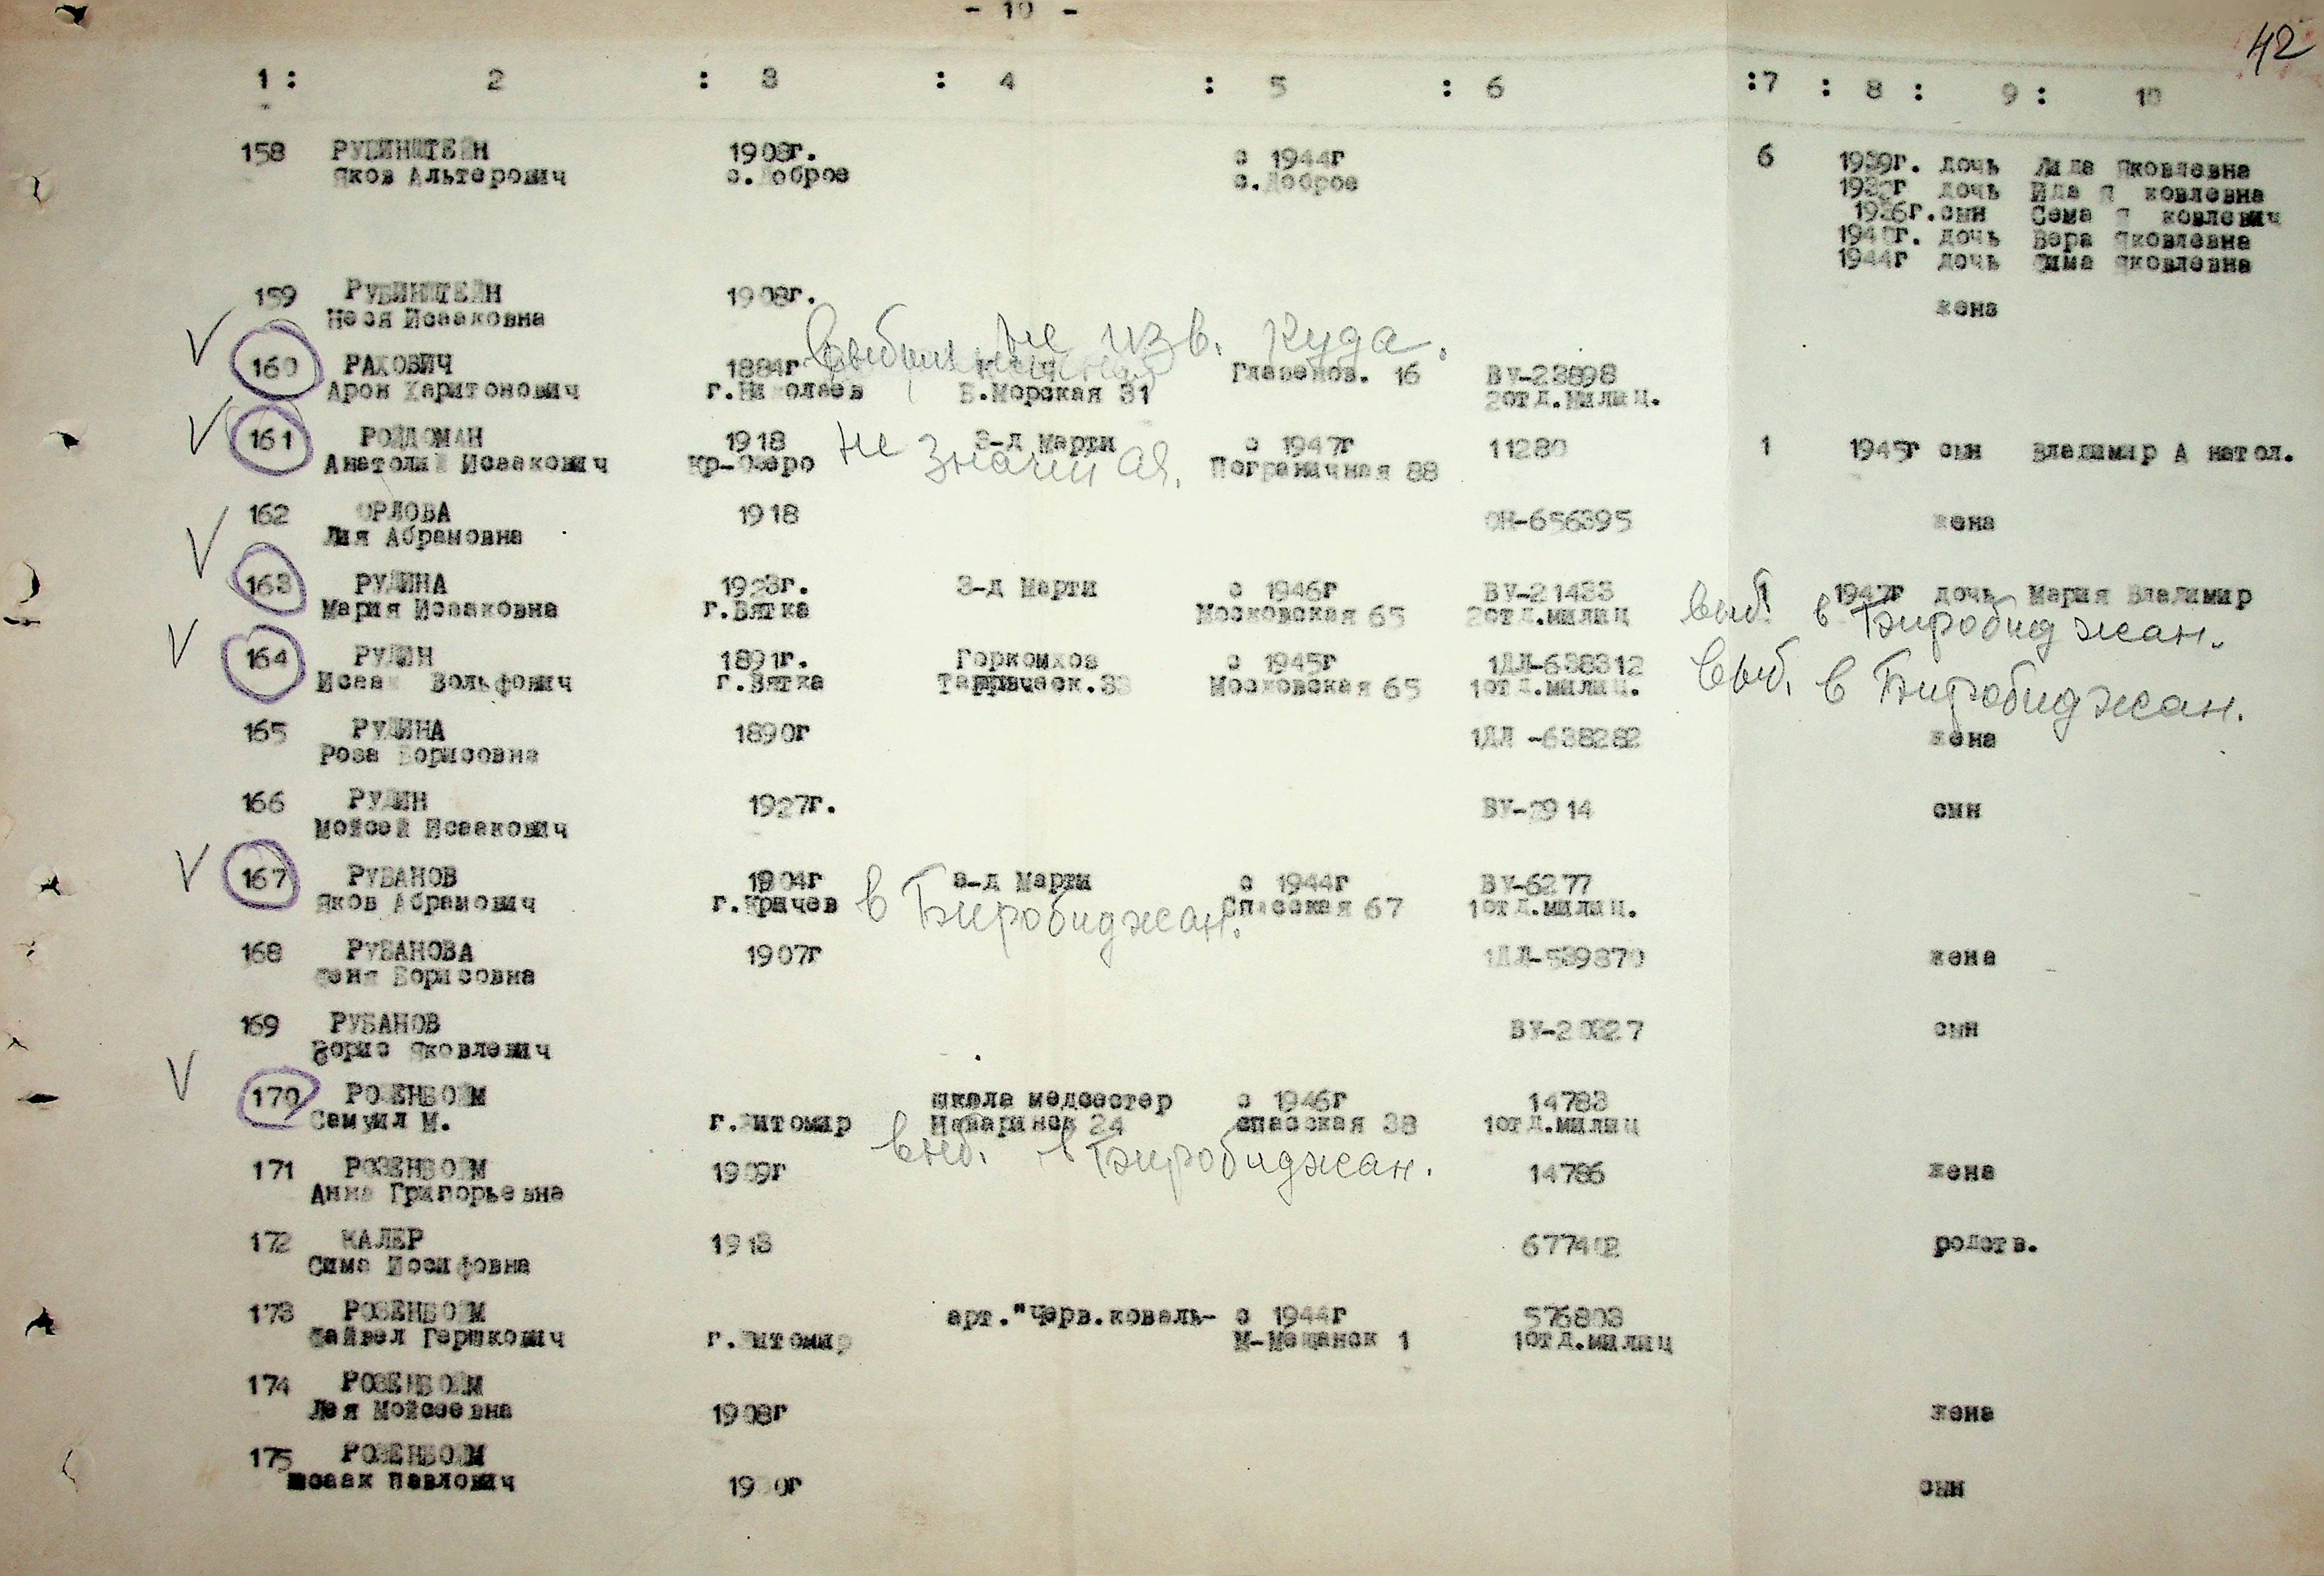 - 10 -
42
1 : 2 : 3 : 4 : 5 : 6 :7 : 8 : 9 : 10
158 РУБИНШТЕЙН 1908г. с 1944г 6 1939г. дочь Лида Яковлевна
Яков Альтерович с.Доброе с.Доброе дочь Ида Я ковлевна
1936г.сын Сема Я ковлевич
дочь Вера Яковлевна
1944г дочь Сима Яковлевна
159 РУБИНШТЕЙН 1908г. жена
Неся Исааковна
выбыл не изв. куда.
160 РАХОВИЧ 1884г Главенов. 16 ВУ-23898
Арон Харитонович г.Николаев Б.Морская 31 2отд.милиц.
161 РОЙДОМАН 1918 З-д Марти с 1947г 11280 1 1945г сын Владимир А натол.
Анатолий Исаакович Кр-Озеро Пограничная 88
не значится.
162 ОРЛОВА 1918 ОН-656395 жена
Лия Абрамовна
163 РУДИНА 1923г. З-д Марти с 1946г ВУ-21433 1 1947г дочь Мария Владимир
Мария Исааковна г.Вятка Московская 65 2отд.милиц
выб. в Биробиджан.
164 РУДИН 1891г. Горкомхоз с 1945г 1ДЛ-638312
Исаак Вольфович г.Вятка Таврическ.33 Московская 65 1отд.милиц.
выб. в Биробиджан.
165 РУДИНА 1890г 1ДЛ -638282 жена
Роза Борисовна
166 РУДИН 1927г. ВУ-2914 сын
Мойсей Исаакович
167 РУБАНОВ 1904г з-д Марти с 1944г ВУ-6277
Яков Абрамович г.Кричев Спасская 67 1отд.милиц.
в Биробиджан.
168 РУБАНОВА 1907г 1ДЛ-589870 жена
Феня Борисовна
169 РУБАНОВ ВУ-20327 сын
Борис Яковлевич
170 РОЗЕНБОЙМ школа медсестер с 1946г 14783
Семуил М. г.Житомир Наваринск 24 спасская 38 1отд.милиц
выб. в Биробиджан.
171 РОЗЕНБОЙМ 1909г 14786 жена
Анна Григорьевна
172 КАЛЕР 1918 677402 родств.
Сима Иосифовна
173 РОЗЕНБОЙМ арт."Черв.коваль- с 1944г 576803
Файвел Гершкович г.Житомир М-Мещанск 1 1отд.милиц
174 РОЗЕНБОЙМ
Лея Мойсеевна 1908г жена
175 РОЗЕНБОЙМ
Исаак Павлович сын